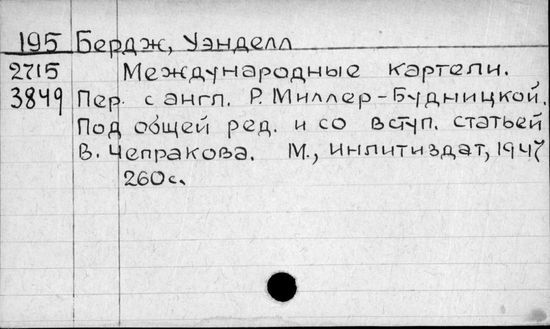 195 Бердж, Уэнделл
2715 Международные картели.
3849 Пер. с англ. Р. Миллер-Будницкой.
Под общей ред. и со вступ. статьей
В. Чепракова. М., Инлитиздат, 1947
260 с.